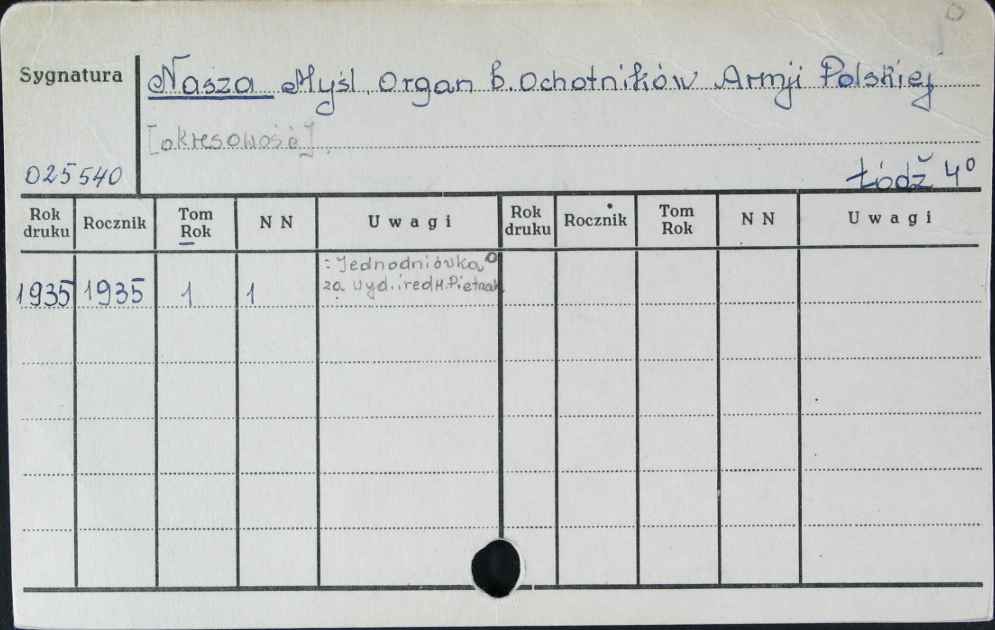 Sygnatura
Nasza Myśl. Organ b. Ochotników Armji Polskiej
[okresowość]
025540
Łódź 4°
Rok druku Rocznik Tom Rok N N Uwagi Rok druku Rocznik Tom Rok N N Uwagi
: Jednodniówka
1935 1935 1 1 za wyd. i red H.